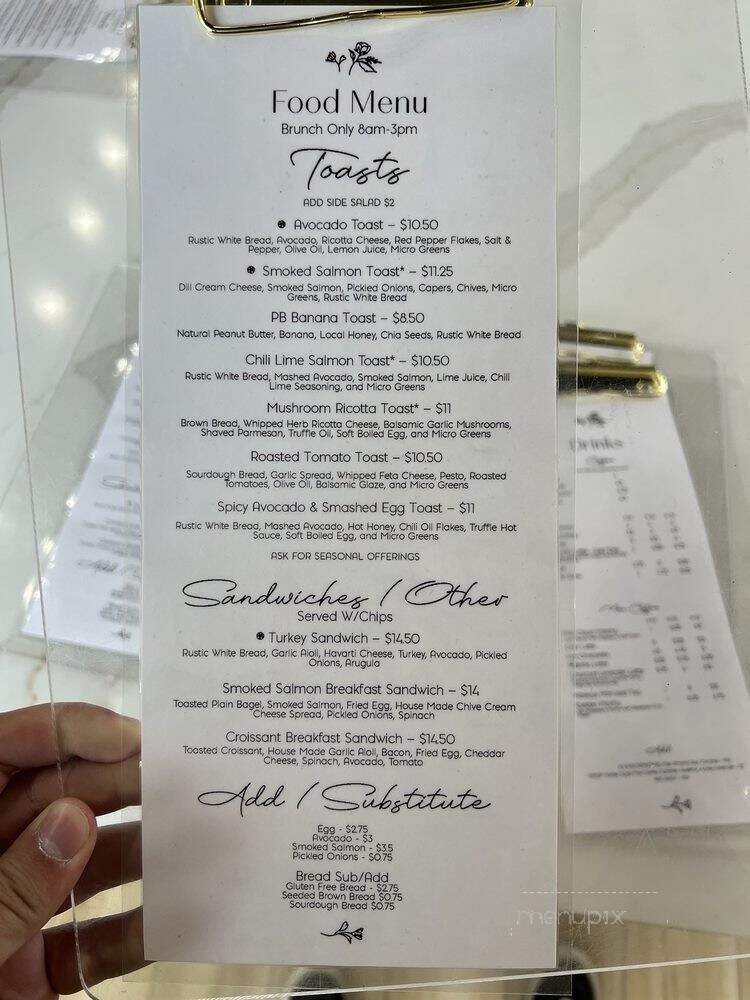 Food Menu
Brunch Only 8am-3pm
Toasts
ADD SIDE SALAD $2
Avocado Toast – $10.50
Rustic White Bread, Avocado, Ricotta Cheese, Red Pepper Flakes, Salt &
Pepper, Olive Oil, Lemon Juice, Micro Greens
Smoked Salmon Toast* – $11.25
Dill Cream Cheese, Smoked Salmon, Pickled Onions, Capers, Chives, Micro
Greens, Rustic White Bread
PB Banana Toast – $8.50
Natural Peanut Butter, Banana, Local Honey, Chia Seeds, Rustic White Bread
Chili Lime Salmon Toast* – $10.50
Rustic White Bread, Mashed Avocado, Smoked Salmon, Lime Juice, Chili
Lime Seasoning, and Micro Greens
Mushroom Ricotta Toast* – $11
Brown Bread, Whipped Herb Ricotta Cheese, Balsamic Garlic Mushrooms,
Shaved Parmesan, Truffle Oil, Soft Boiled Egg, and Micro Greens
Roasted Tomato Toast – $10.50
Sourdough Bread, Garlic Spread, Whipped Feta Cheese, Pesto, Roasted
Tomatoes, Olive Oil, Balsamic Glaze, and Micro Greens
Spicy Avocado & Smashed Egg Toast – $11
Rustic White Bread, Mashed Avocado, Hot Honey, Chili Oil Flakes, Truffle Hot
Sauce, Soft Boiled Egg, and Micro Greens
ASK FOR SEASONAL OFFERINGS
Sandwiches / Other
Served W/Chips
Turkey Sandwich – $14.50
Rustic White Bread, Garlic Aioli, Havarti Cheese, Turkey, Avocado, Pickled
Onions, Arugula
Smoked Salmon Breakfast Sandwich – $14
Toasted Plain Bagel, Smoked Salmon, Fried Egg, House Made Chive Cream
Cheese Spread, Pickled Onions, Spinach
Croissant Breakfast Sandwich – $14.50
Toasted Croissant, House Made Garlic Aioli, Bacon, Fried Egg, Cheddar
Cheese, Spinach, Avocado, Tomato
Add / Substitute
Egg - $2.75
Avocado - $3
Smoked Salmon - $3.5
Pickled Onions - $0.75
Bread Sub/Add
Gluten Free Bread - $2.75
Seeded Brown Bread $0.75
Sourdough Bread $0.75
Drinks
Add
menupix